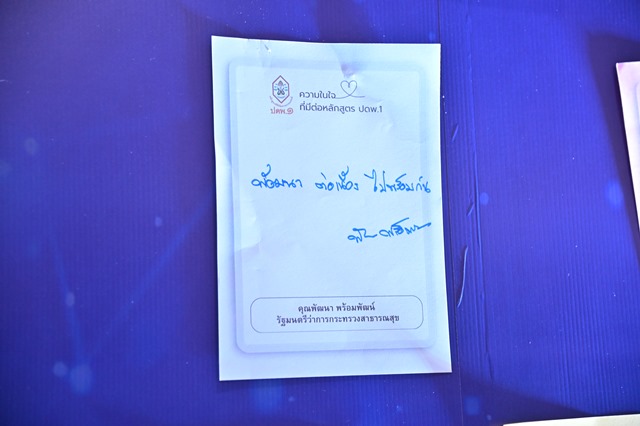 ปดพ.๑
ความในใจ
ที่มีต่อหลักสูตร ปดพ.1
พัฒนา ต่อเนื่อง ไปพร้อมกัน
คุณพัฒนา พร้อมพัฒน์
รัฐมนตรีว่าการกระทรวงสาธารณสุข